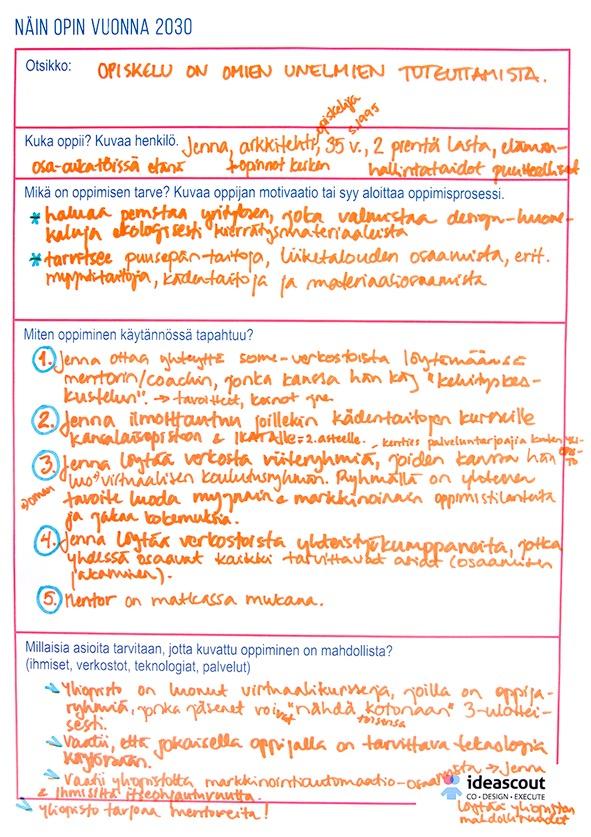 NÄIN OPIN VUONNA 2030
Otsikko: OPISKELU ON OMIEN UNELMIEN TOTEUTTAMISTA.
opiskelija s.1995
Kuka oppii? Kuvaa henkilö. Jenna, arkkitehti, 35 v., 2 pientä lasta, elämän-
osa-aikatöissä etänä + opinnot kesken hallintataidot puutteelliset
Mikä on oppimisen tarve? Kuvaa oppijan motivaatio tai syy aloittaa oppimisprosessi.
* haluaa perustaa yrityksen, joka valmistaa design-huone-
kaluja ekologisesti kierrätysmateriaaleista
* tarvitsee puusepän taitoja, liiketalouden osaamista, erit.
myyntitaitoja, kädentaitoja ja materiaaliosaamista
Miten oppiminen käytännössä tapahtuu?
1. Jenna ottaa yhteyttä some-verkostoista löytämäänsä
mentoriin/coachiin, jonka kanssa hän käy "kehityskes-
kustelun". → tavoitteet, keinot jne.
2. Jenna ilmoittautuu joillekin kädentaitojen kursseille
kansalaisopiston & 2.asteelle. - kenties palveluntarjoajia kuten yli-
opis-
to
3. Jenna löytää verkosta viiteryhmiä, joiden kanssa hän
luo virtuaalisen kouluttusryhmän. Ryhmällä on yhteinen
→ oman
tavoite luoda myynnin & markkinoinnin oppimistilanteita
ja jakaa kokemuksia.
4. Jenna löytää verkostoista yhteistyökumppaneita, jotka
yhdessä osaavat kaikki tarvittavat asiat (osaamisen
jakaminen).
5. Mentor on matkassa mukana.
Millaisia asioita tarvitaan, jotta kuvattu oppiminen on mahdollista?
(ihmiset, verkostot, teknologiat, palvelut)
→ Yliopisto on luonut virtuaalikursseja, joilla on oppija-
ryhmiä, jonka jäsenet voivat "nähdä toisensa kotonaan" 3-ulottei-
sesti.
→ Vaatii, että jokaisella oppijalla on tarvittava teknologia
käytössään.
→ Vaatii yliopistolta markkinointiautomaatio-osaamista → Jenna
löytää yliopiston
mahdollisuudet
& ihmisiltä itseohjautuvuutta.
→ yliopisto tarjoaa mentoreita!
ideascout
CO • DESIGN • EXECUTE